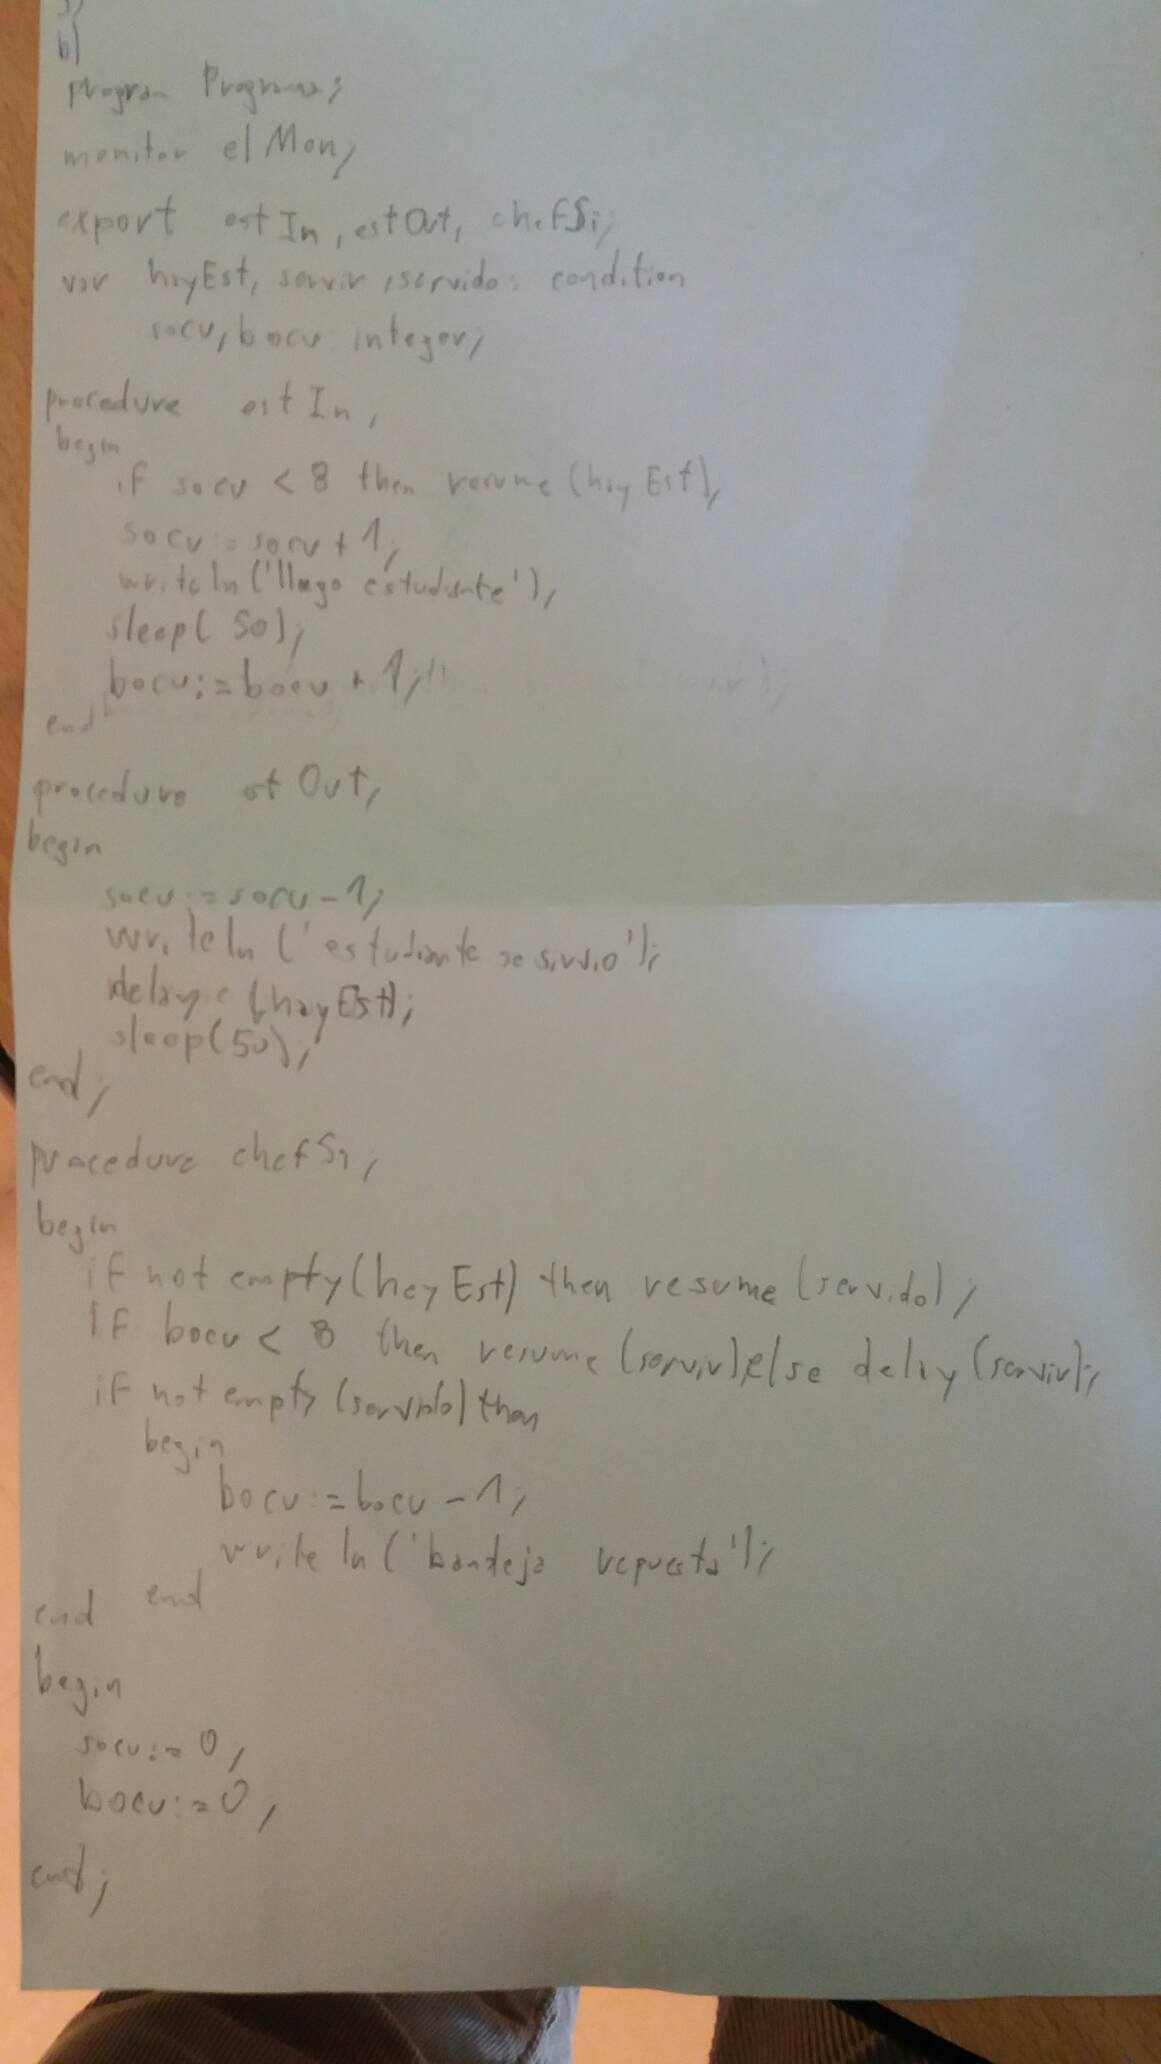 b)
program Programa;
monitor el Mon;
export estIn, estOut, chefSi;
var hayEst, servir, servido: condition
socu, bocu: integer;
procedure estIn;
begin
if socu < 8 then resume (hayEst);
socu:=socu+1;
writeln('llego estudiante');
sleep(50);
bocu:=bocu+1;
end
procedure estOut;
begin
socu:=socu-1;
writeln('estudiante se sirvio');
delay (hayEst);
sleep(50);
end;
procedure chefSi;
begin
if not empty(hayEst) then resume (servido);
if bocu < 8 then resume (servir) else delay (servir);
if not empty (servido) then
begin
bocu:=bocu-1;
writeln('bandeja repuesta');
end end
begin
socu:=0;
bocu:=0;
end;